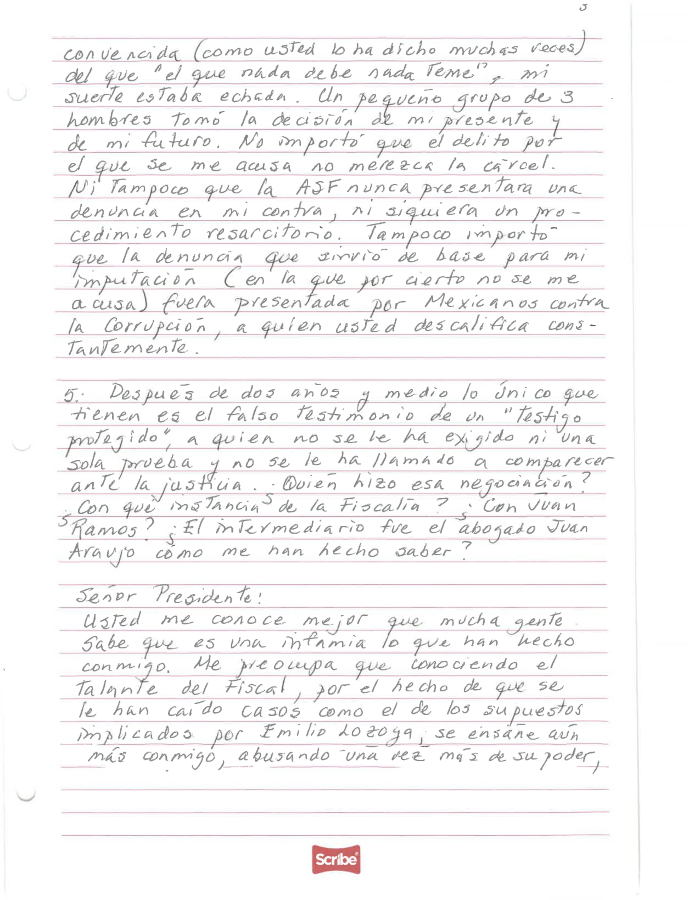 3
convencida (como usted lo ha dicho muchas veces)
del que "el que nada debe nada teme", mi
suerte estaba echada. Un pequeño grupo de 3
hombres tomó la decisión de mi presente y
de mi futuro. No importó que el delito por
el que se me acusa no merezca la cárcel.
Ni tampoco que la ASF nunca presentara una
denuncia en mi contra, ni siquiera un pro-
cedimiento resarcitorio. Tampoco importó
que la denuncia que sirvió de base para mi
imputación (en la que por cierto no se me
acusa) fuera presentada por Mexicanos contra
la Corrupción, a quien usted descalifica cons-
tantemente.
5.- Después de dos años y medio lo único que
tienen es el falso testimonio de un "testigo
protegido", a quien no se le ha exigido ni una
sola prueba y no se le ha llamado a comparecer
ante la justicia. ¿Quién hizo esa negociación?
¿Con qué instancias de la Fiscalía? ¿Con Juan
Ramos? ¿El intermediario fue el abogado Juan
Araujo cómo me han hecho saber?
Señor Presidente!
Usted me conoce mejor que mucha gente.
Sabe que es una infamia lo que han hecho
conmigo. Me preocupa que conociendo el
talante del Fiscal, por el hecho de que se
le han caído casos como el de los supuestos
implicados por Emilio Lozoya, se ensañe aún
más conmigo, abusando una vez más de su poder,
Scribe